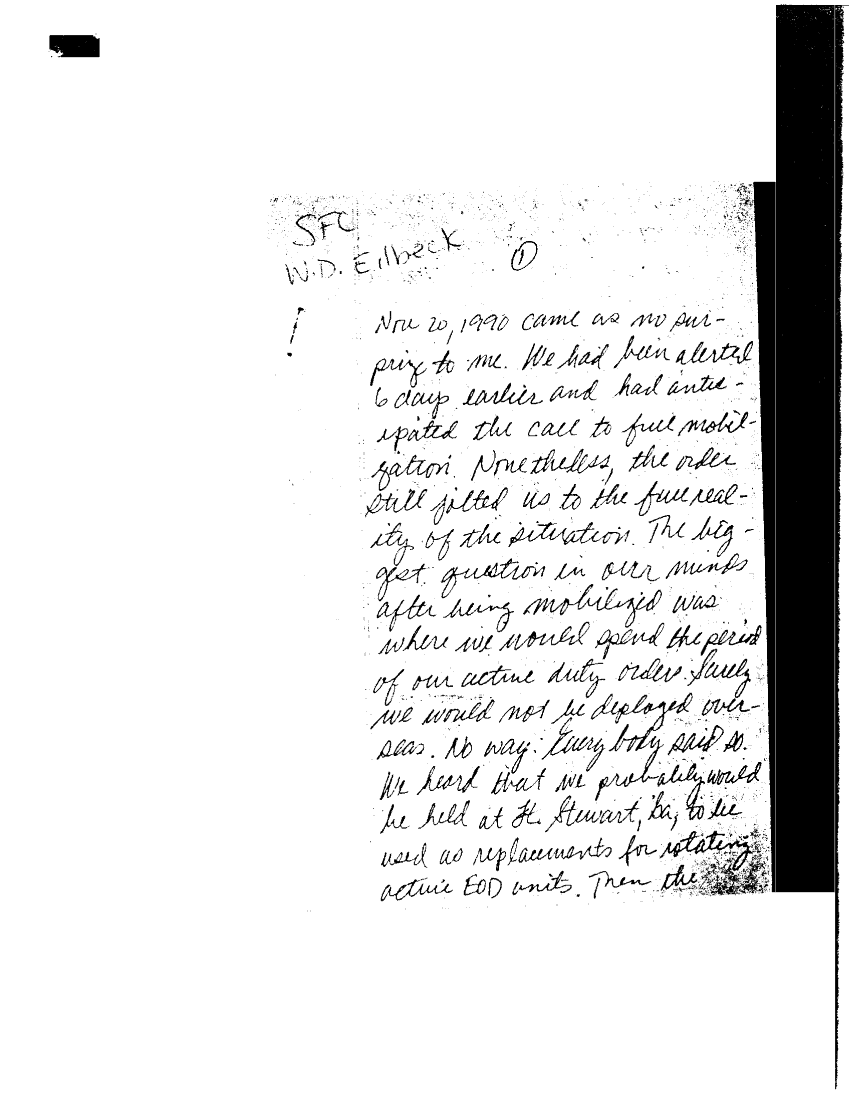 SFC
W.D. Eilbeck
1
Nov 20, 1990 came as no sur-
prize to me. We had been alerted
6 days earlier and had antic-
ipated the call to full mobil-
ization. Nonetheless, the order
still jolted us to the full real-
ity of the situation. The big-
gest question in our minds
after being mobilized was
where we would spend the period
of our active duty orders. Surely
we would not be deployed over-
seas. No way. Everybody said so.
We heard that we probably would
be held at Ft. Stewart, Ga, to be
used as replacements for rotating
active EOD units. Then the